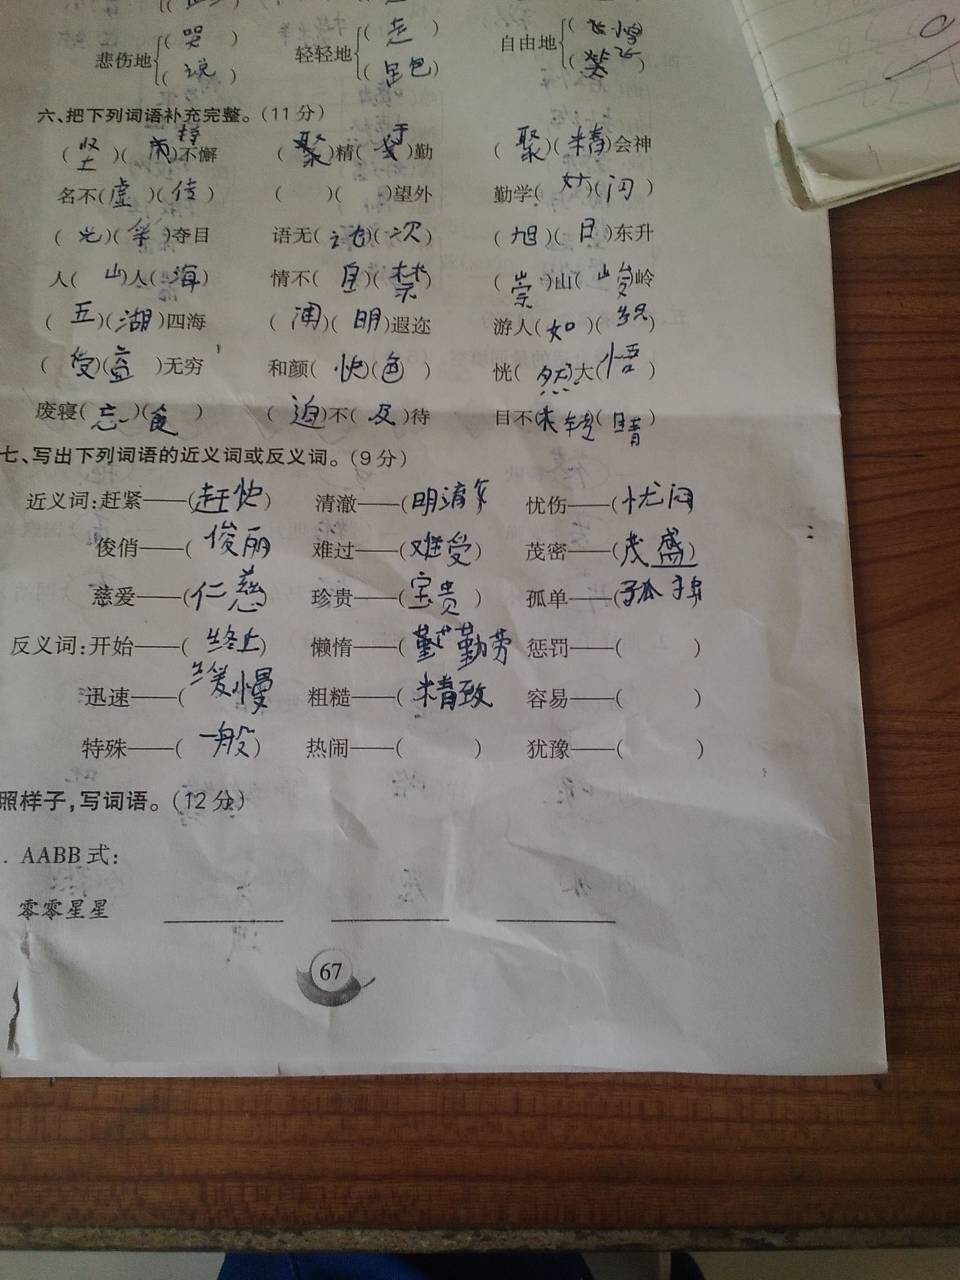 悲伤地{(哭)(说) 轻轻地{(走)( ) 自由地{( )( )
六、把下列词语补充完整。(11分)
(坚)(持)不懈 (聚)精( )勤 (聚)(精)会神
名不(虚)(传) ( )( )望外 勤学( )(问)
(光)(彩)夺目 语无( )(次) (旭)(日)东升
人(山)人(海) 情不(自)(禁) (崇)山(峻)岭
(五)(湖)四海 (闻)(明)遐迩 游人(如)(织)
(受)(益)无穷 和颜(悦)(色) 恍(然)大(悟)
废寝(忘)(食) (迫)不(及)待 目不转(睛)
七、写出下列词语的近义词或反义词。(9分)
近义词:赶紧——(赶快) 清澈——(明清) 忧伤——(忧闷
俊俏——(俊丽 难过——(难受) 茂密——(茂盛)
慈爱——(仁慈) 珍贵——(宝贵) 孤单——(孤
反义词:开始——(终止) 懒惰——(勤劳 惩罚——( )
迅速——(缓慢 粗糙——(精致 容易——( )
特殊——(一般) 热闹——( ) 犹豫——( )
照样子,写词语。(12分)
. AABB式:
零零星星
67